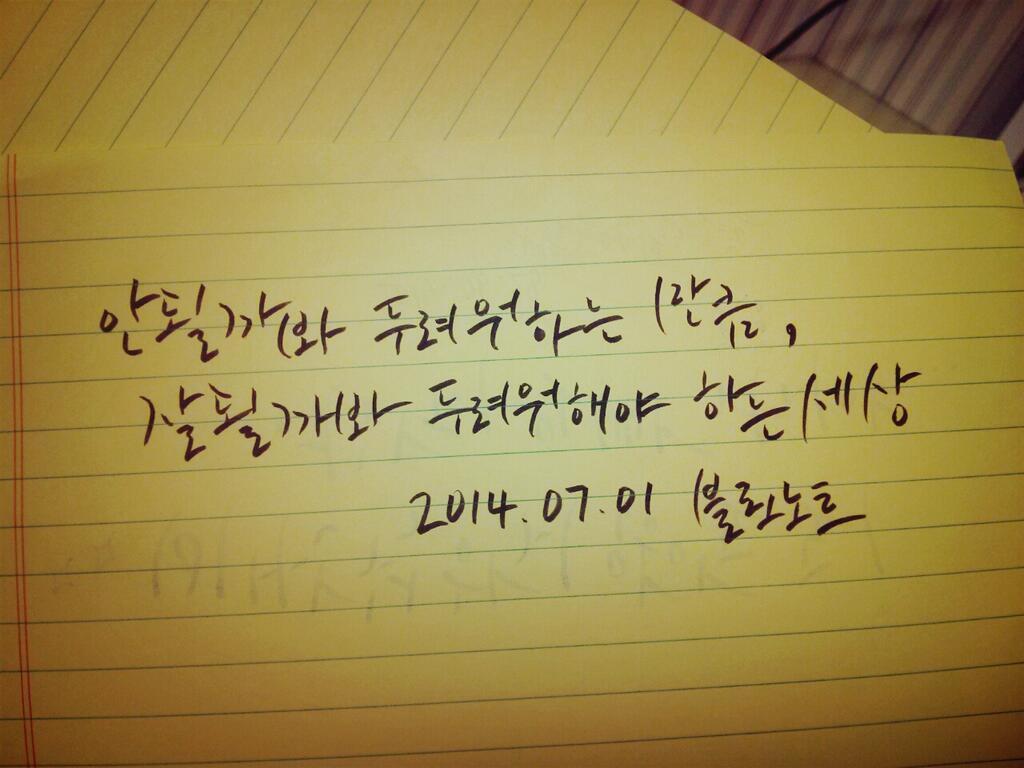 안될까봐 두려워하는 만큼,
잘될까봐 두려워해야 하는 세상
2014.07.01 블랙노트